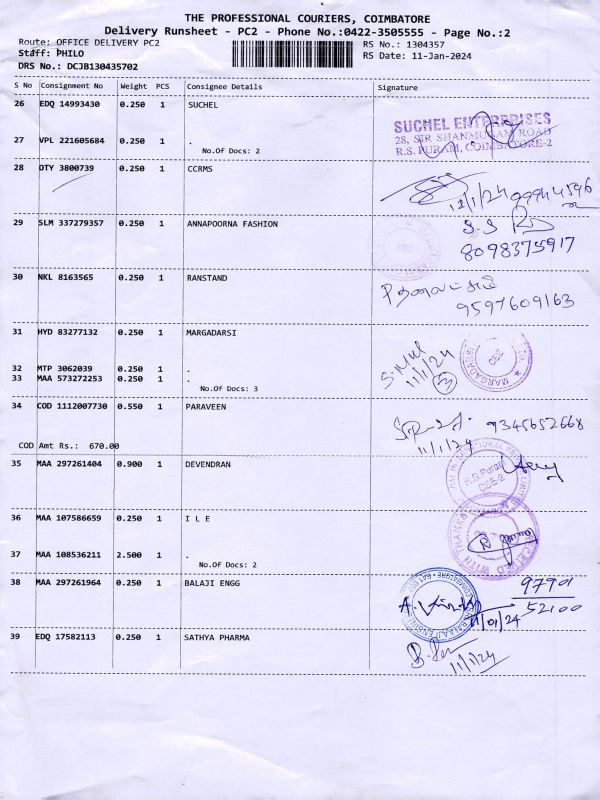 THE PROFESSIONAL COURIERS, COIMBATORE
Delivery Runsheet - PC2 - Phone No.:0422-3505555 - Page No.:2
Route: OFFICE DELIVERY PC2
RS No.: 1304357
Staff: PHILO
RS Date: 11-Jan-2024
DRS No.: DCJB130435702
S No Consignment No Weight PCS Consignee Details Signature
26 EDQ 14993430 0.250 1 SUCHEL
SUCHEL ENTERPRISES
28, SIR SHANMUGAM ROAD
R.S. PURAM, COIMBATORE-2
27 VPL 221605684 0.250 1 .
No.Of Docs: 2
28 DTY 3800739 0.250 1 CCRMS
12/1/24
29 SLM 337279357 0.250 1 ANNAPOORNA FASHION
8098375917
30 NKL 8163565 0.250 1 RANSTAND
9597609163
31 HYD 83277132 0.250 1 MARGADARSI
11/1/24
3
32 MTP 3062039 0.250 1 .
33 MAA 573272253 0.250 1 .
No.Of Docs: 3
34 COD 1112007730 0.550 1 PARAVEEN
9345652668
11/1/24
COD Amt Rs.: 670.00
35 MAA 297261404 0.900 1 DEVENDRAN
R.S. Puram
CBE-2
36 MAA 107586659 0.250 1 I L E
37 MAA 108536211 2.500 1 .
No.Of Docs: 2
38 MAA 297261964 0.250 1 BALAJI ENGG
97701
52100
11/01/24
39 EDQ 17582113 0.250 1 SATHYA PHARMA
11/1/24